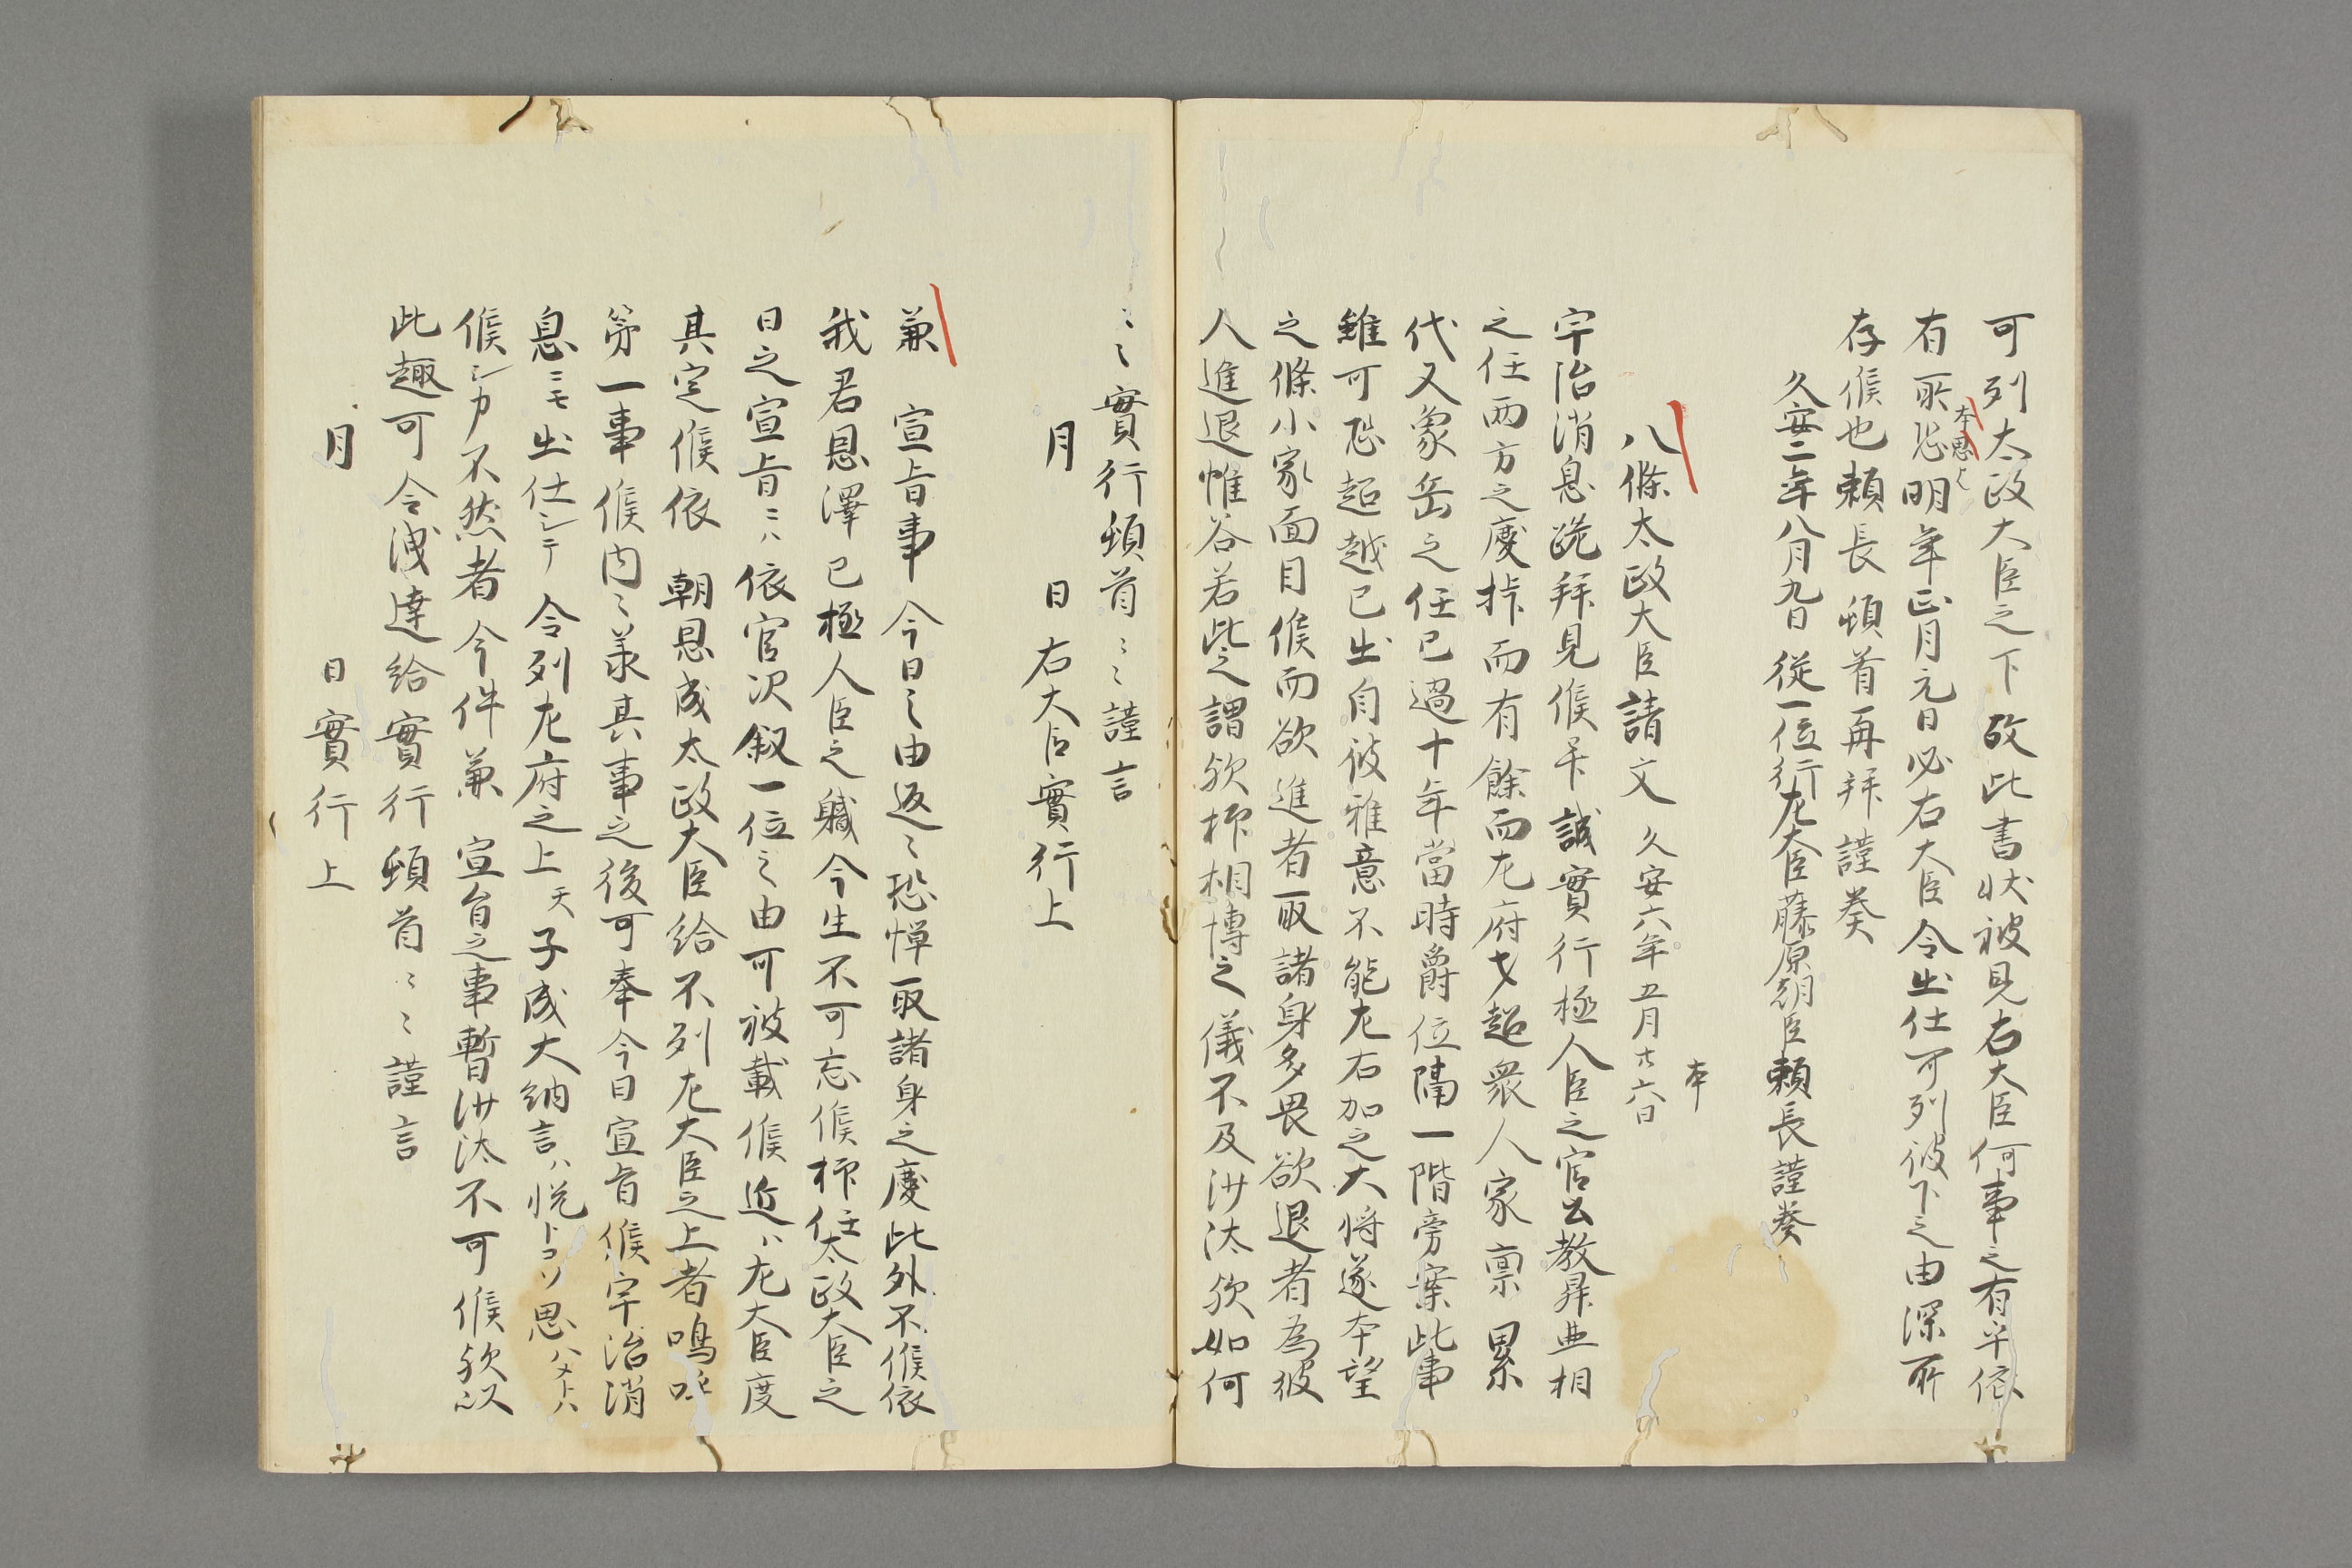 可列太政大臣之下故此書状被見右大臣何事之有乎依
有所恐明年正月元日必右大臣令出仕可列彼下之由深所
本思上
存候也頼長頓首再拜謹奏
久安二年八月九日從一位行左大臣藤原朝臣頼長謹奏
八條太政大臣請文 久安六年五月廿六日
本
宇治消息跪拜見候畢誠實行極人臣之官公教昇亜相
之任両方之慶抃而有餘而左府才超衆人家禀累
代又象岳之任已過十年當時爵位隔一階旁案此事
雖可恐超越已出自彼雅意不能左右加之大将遂本望
之條小家面目候而欲進者取諸身多畏欲退者為彼
人進退惟谷若此之謂欤抑相博之儀不及沙汰欤如何
ミミ實行頓首ミミ謹言
月 日右大臣實行上
兼 宣旨事今日之由返ミ恐惮取諸身之慶此外不候依
我君恩澤已極人臣之軄今生不可忘候抑任太政大臣之
日之宣旨ニハ依官次叙一位之由可被載候近ハ左大臣度
其定候依 朝恩成太政大臣給不列左大臣之上者嗚呼
第一事候内ミ羕其事之後可奉今日宣旨候宇治消
息ニモ出仕シテ令列左府之上天子成大納言ハ悦トコソ思ハメトハ
候シカ不然者今件兼 宣旨之事暫沙汰不可候欤以
此趣可令洩達給實行頓首ミミ謹言
月 日實行上